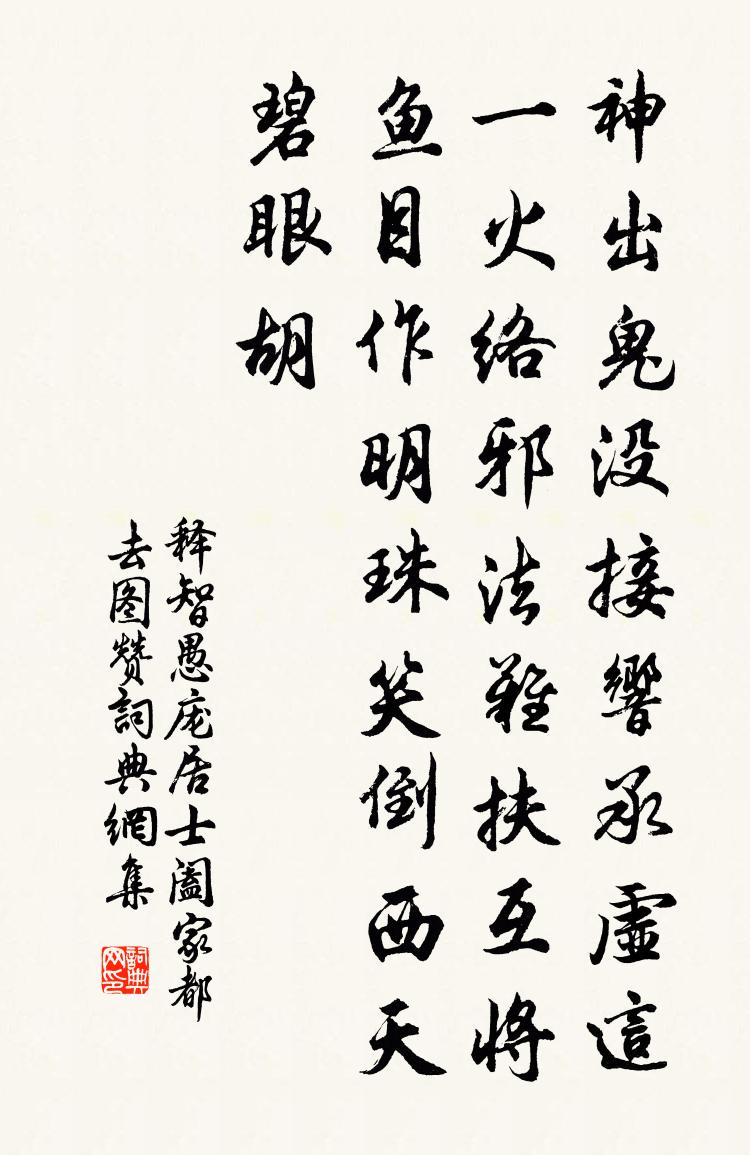 神出鬼没接響承虛這
一火络邪法難扶互将
鱼目作明珠笑倒西天
碧眼胡
释智愚庞居士阖家都
去图赞詞典網集
詞典
网印